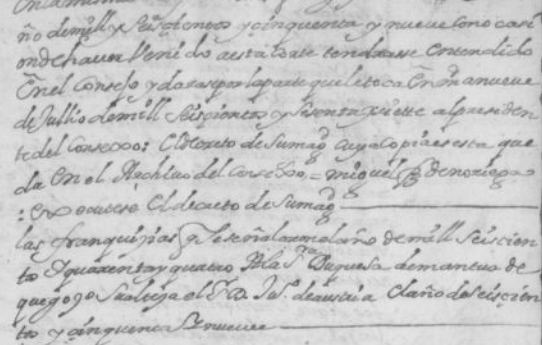 ño de mill y Seiscientos y cinquenta y nueve con ocasi
on de haver Venido a esta Corte tendrasse entendido
En el Consejo y darase por la parte que le toca En m nueve
de Jullio de mill Seiscientos y Sesenta y siette al presiden
te del Consexo: El decreto de Su magd cuya copia es esta que
da En el Archivo del Consexo = miguel de noriega
: El decreto de Su magd
las franquizias q se señalaron el año de mill Seiscien
to y quarenta y quatro a la Sra Duquesa de mantua de
que gozo Su alteza el Sr D. Ju. de austria el año de Seiscien
tos y cinquenta y nueve